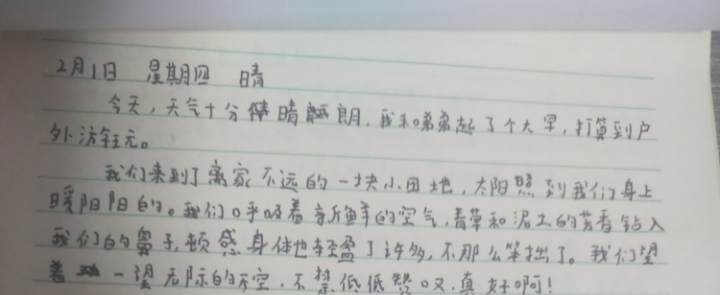 2月1日 星期四 晴
今天,天气十分晴朗,我和弟弟起了个大早,打算到户
外游玩。
我们来到了离家不远的一块小田地,太阳照到我们身上
暖阳阳的。我们呼吸着新鲜的空气,青草和泥土的芳香钻入
我们的鼻子,顿感身体也轻盈了许多,不那么笨拙了。我们望
着一望无际的天空,不禁低低赞叹,真好啊!